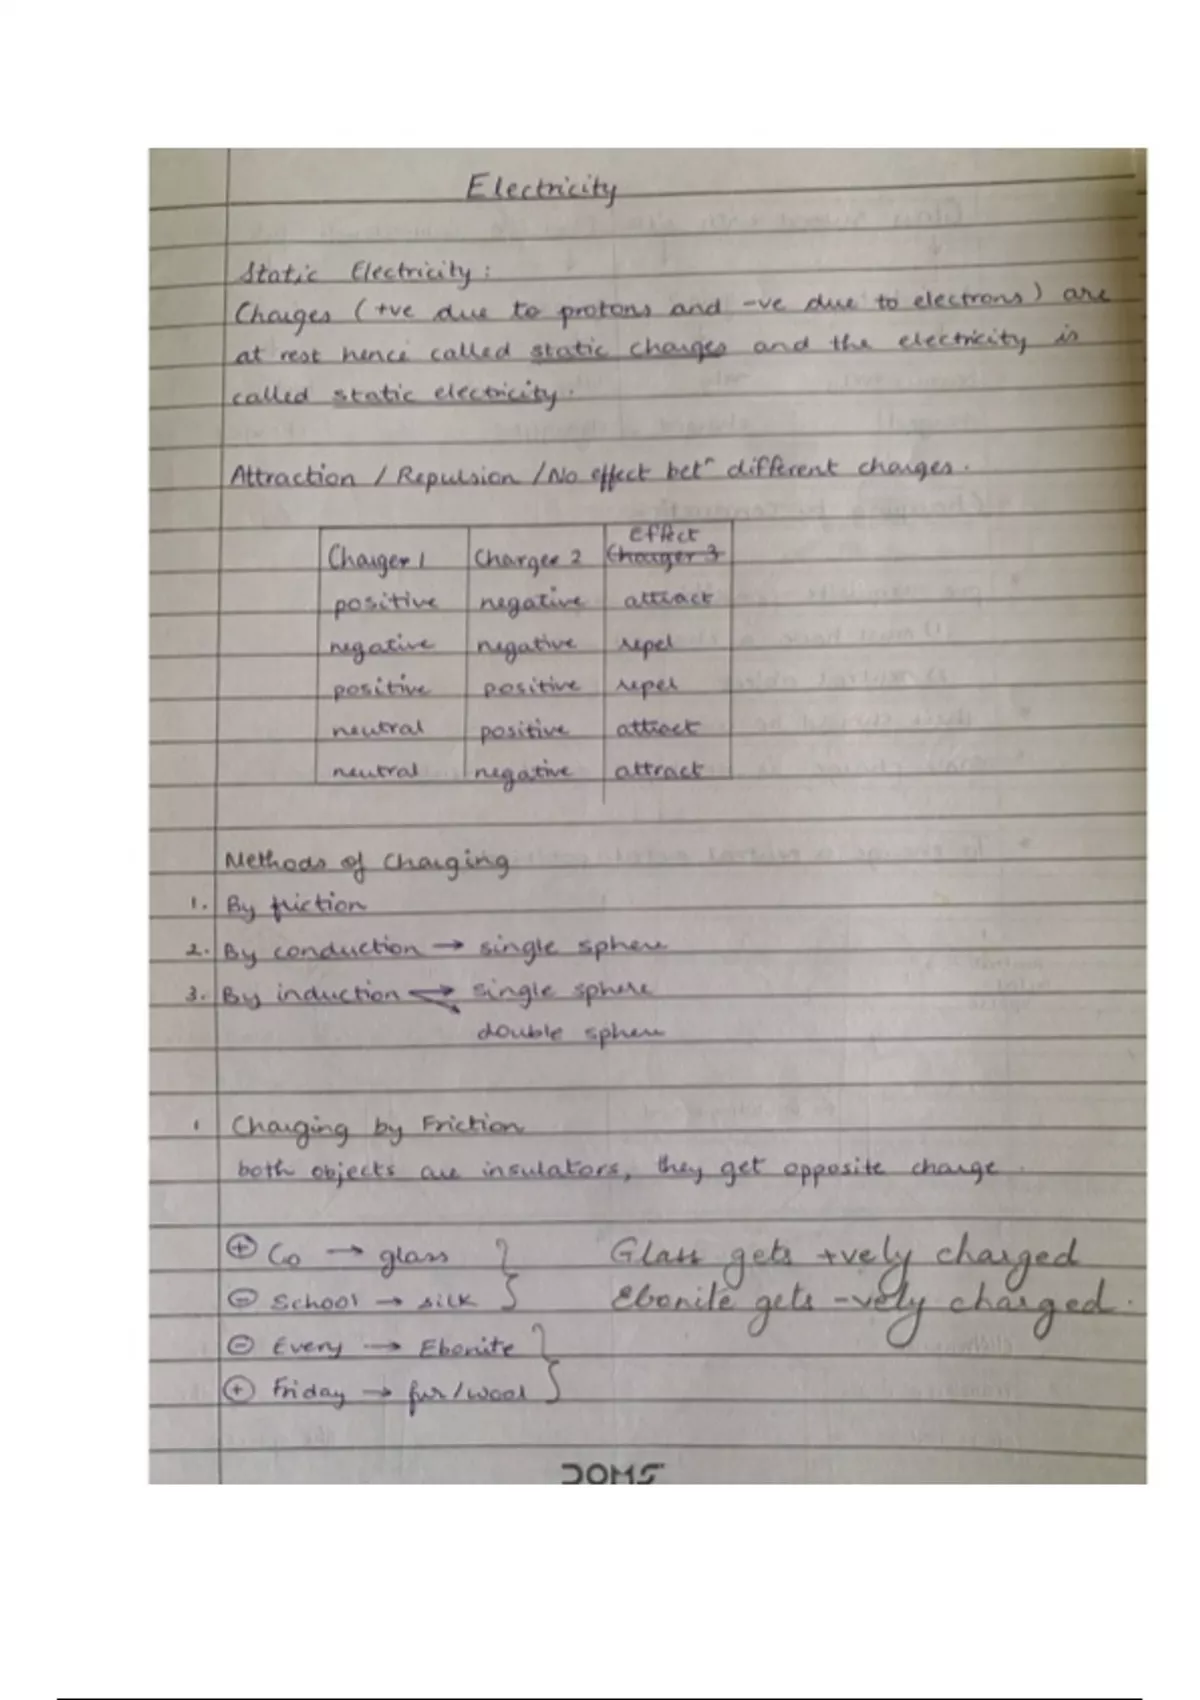 Electricity
Static Electricity:
Charges (+ve due to protons and -ve due to electrons) are
at rest hence called static charges and the electricity is
called static electricity.
Attraction / Repulsion / No effect betn different charges.
Charger 1 Charger 2 Effect Charger 3
positive negative attract
negative negative repel
positive positive repel
neutral positive attract
neutral negative attract
Methods of Charging
1. By friction
2. By conduction → single sphere
3. By induction → single sphere
double sphere
1 Charging by Friction
both objects are insulators, they get opposite charge.
⊕ Go → glass
⊖ School → silk
Glass gets +vely charged
Ebonite gets -vely charged.
⊖ Every → Ebonite
⊕ Friday → fur/wool
DOMS